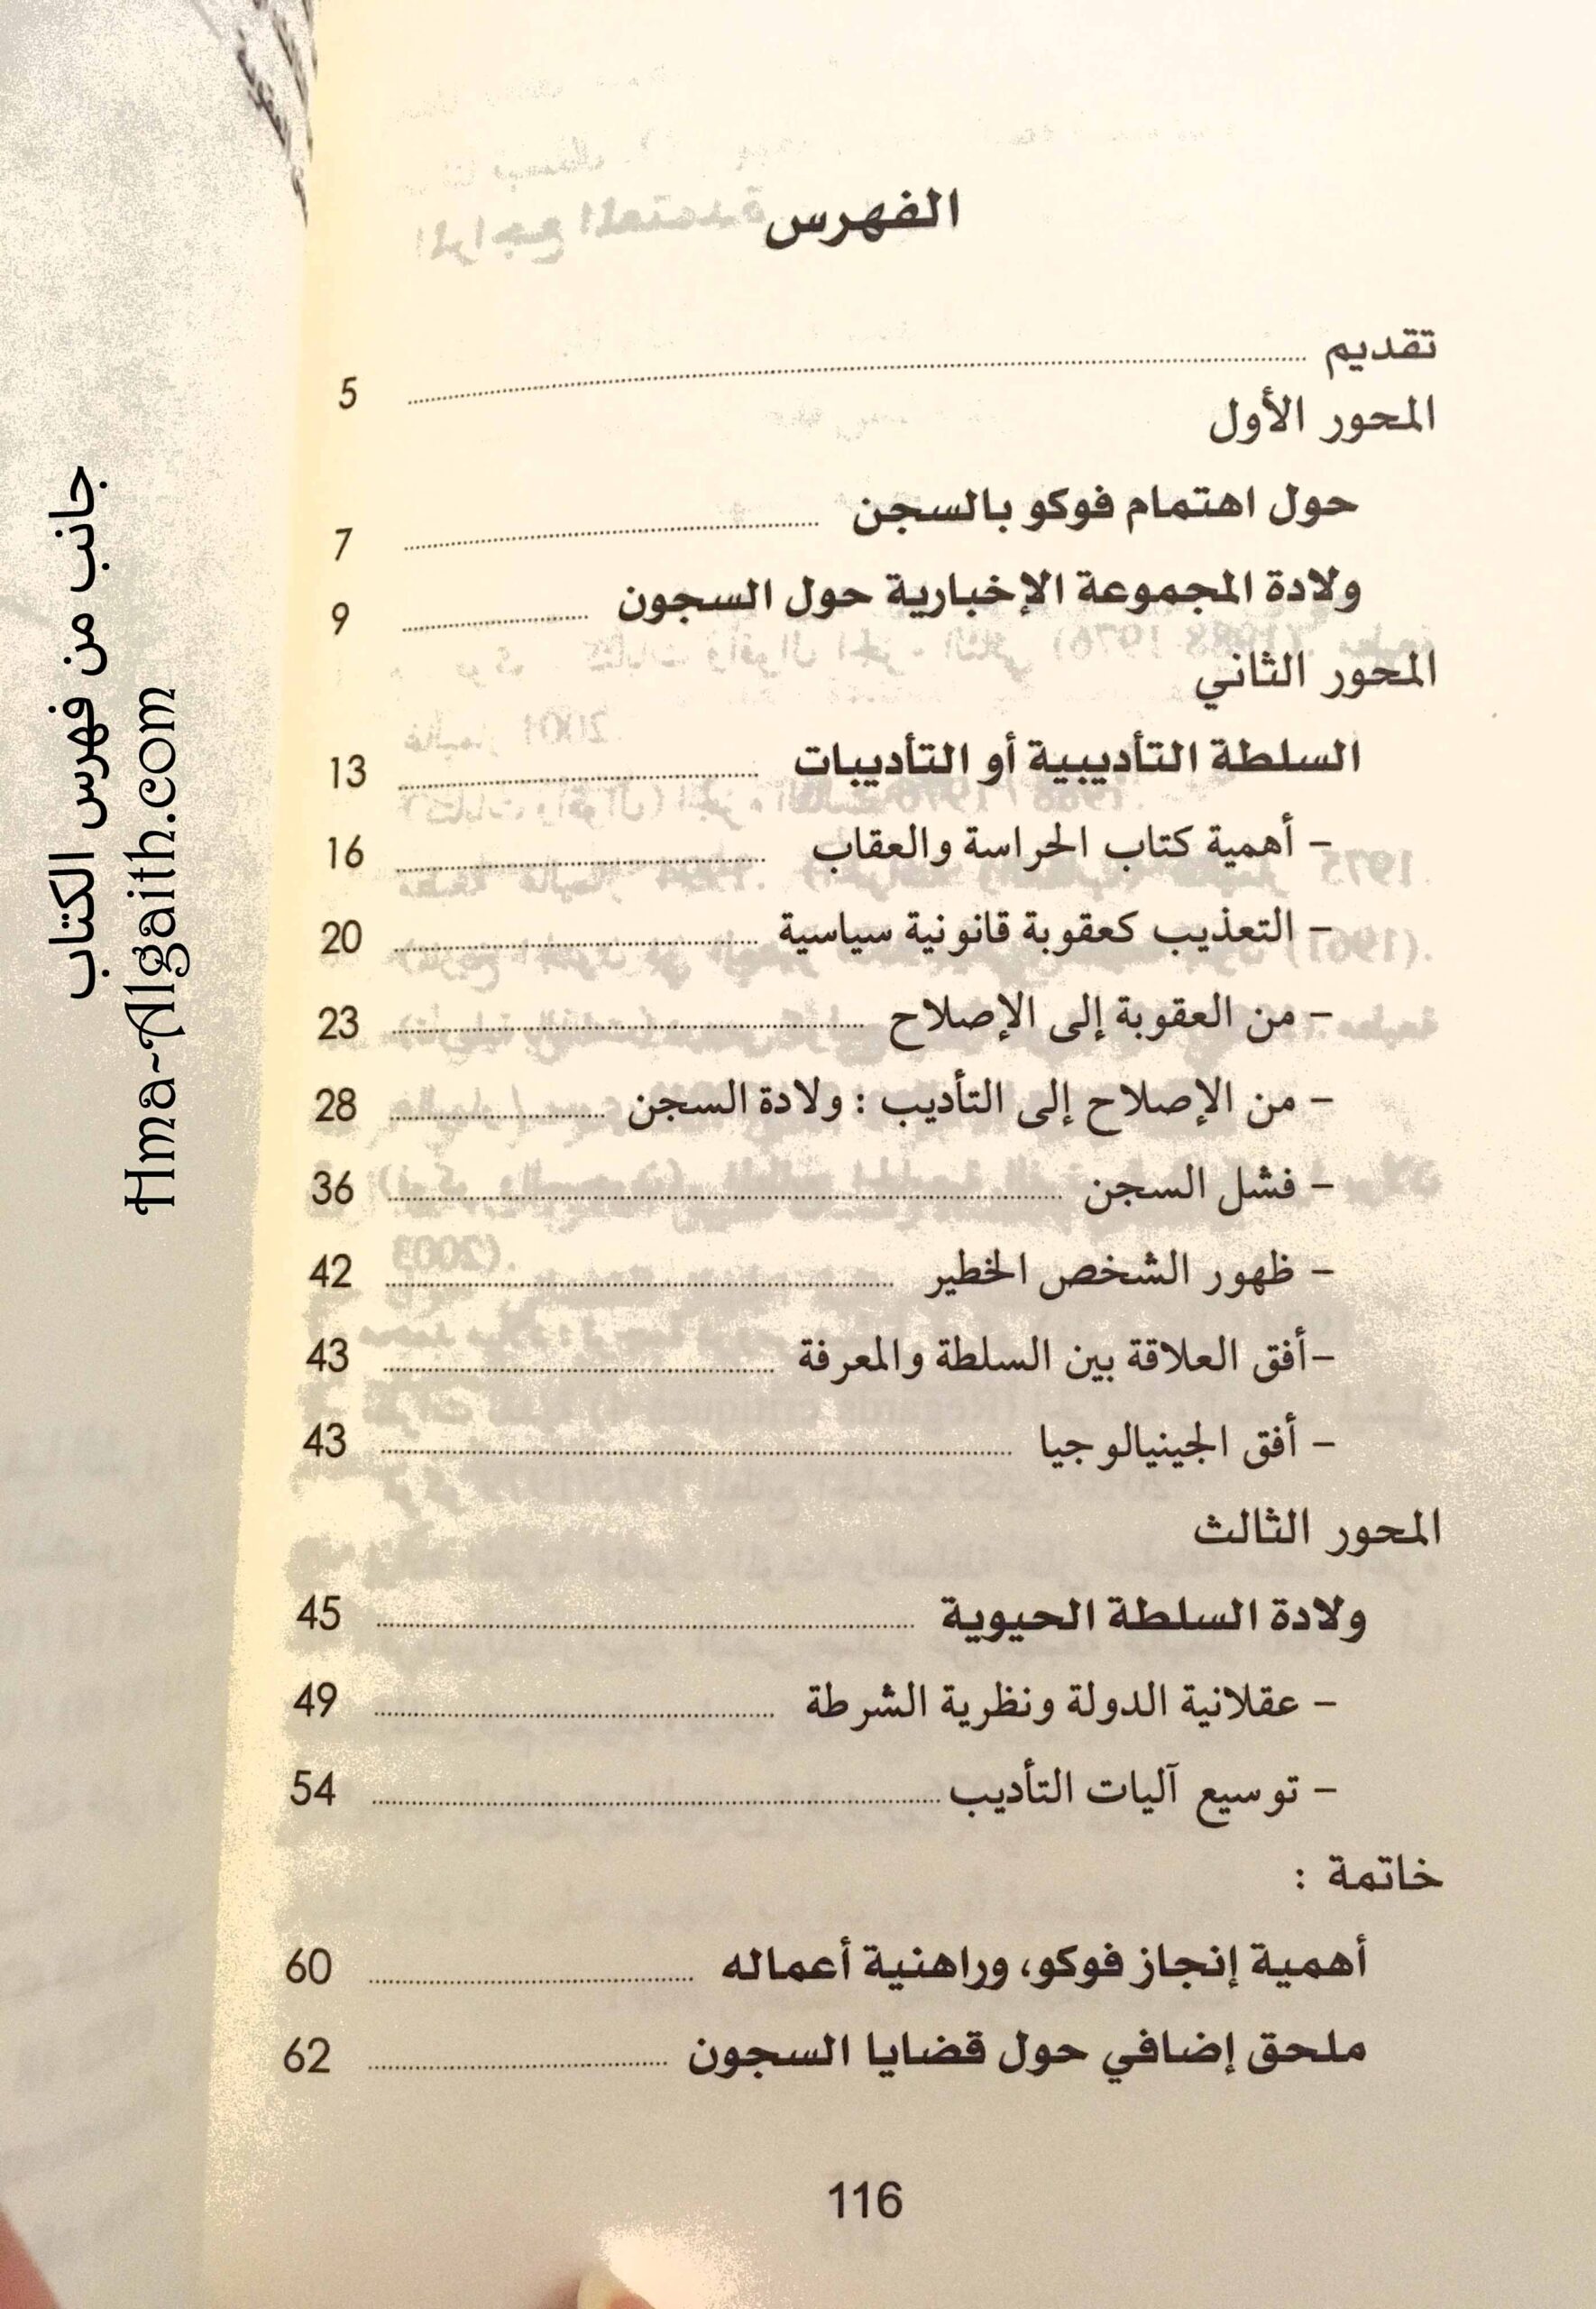 الفهرس
تقديم ........ 5
المحور الأول
حول اهتمام فوكو بالسجن ........ 7
ولادة المجموعة الإخبارية حول السجون ........ 9
المحور الثاني
السلطة التأديبية أو التأديبات ........ 13
- أهمية كتاب الحراسة والعقاب ........ 16
- التعذيب كعقوبة قانونية سياسية ........ 20
- من العقوبة إلى الإصلاح ........ 23
- من الإصلاح إلى التأديب : ولادة السجن ........ 28
- فشل السجن ........ 36
- ظهور الشخص الخطير ........ 42
-أفق العلاقة بين السلطة والمعرفة ........ 43
- أفق الجينيالوجيا ........ 43
المحور الثالث
ولادة السلطة الحيوية ........ 45
- عقلانية الدولة ونظرية الشرطة ........ 49
- توسيع آليات التأديب ........ 54
خاتمة :
أهمية إنجاز فوكو، وراهنية أعماله ........ 60
ملحق إضافي حول قضايا السجون ........ 62
116
جانب من فهرس الكتاب
Hma-Algaith.com